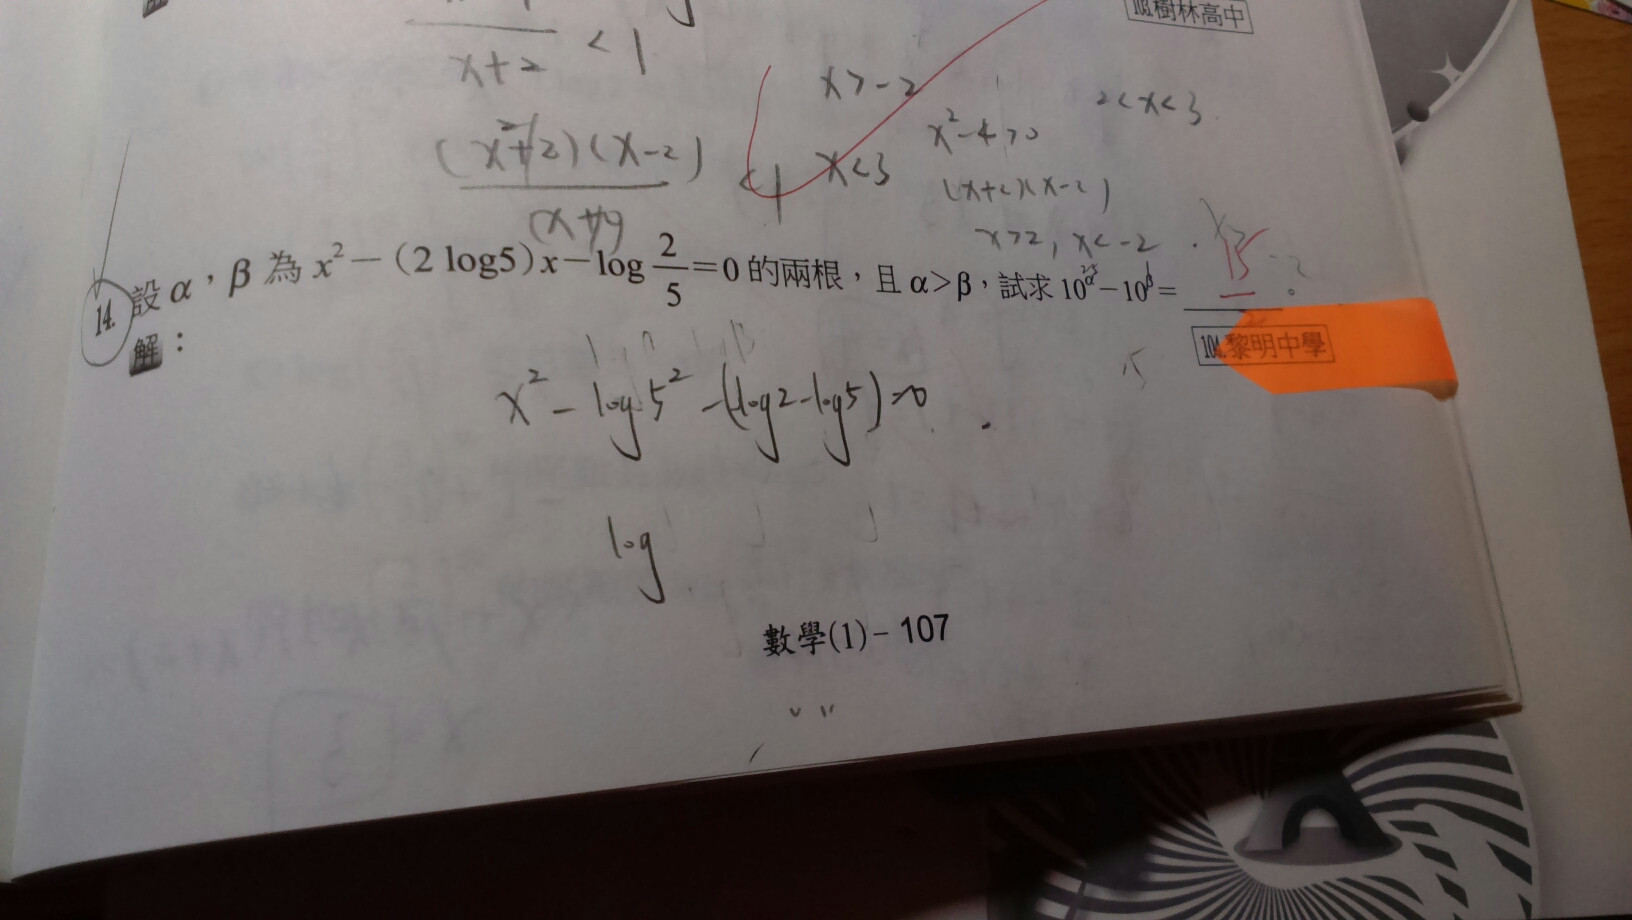 樹林高中
x+2 < 1
x>-2
2<x<3
x²-4>0
(x-2) < 1
x<3
(x+2)(x-2)
x>2, x<-2
15
14. 設α,β為x²-(2 log5)x-log 2/5=0的兩根,且α>β,試求10^α-10^β=______。
解:
104.黎明中學
x²-log5²-(log2-log5)=0
log
數學(1)-107